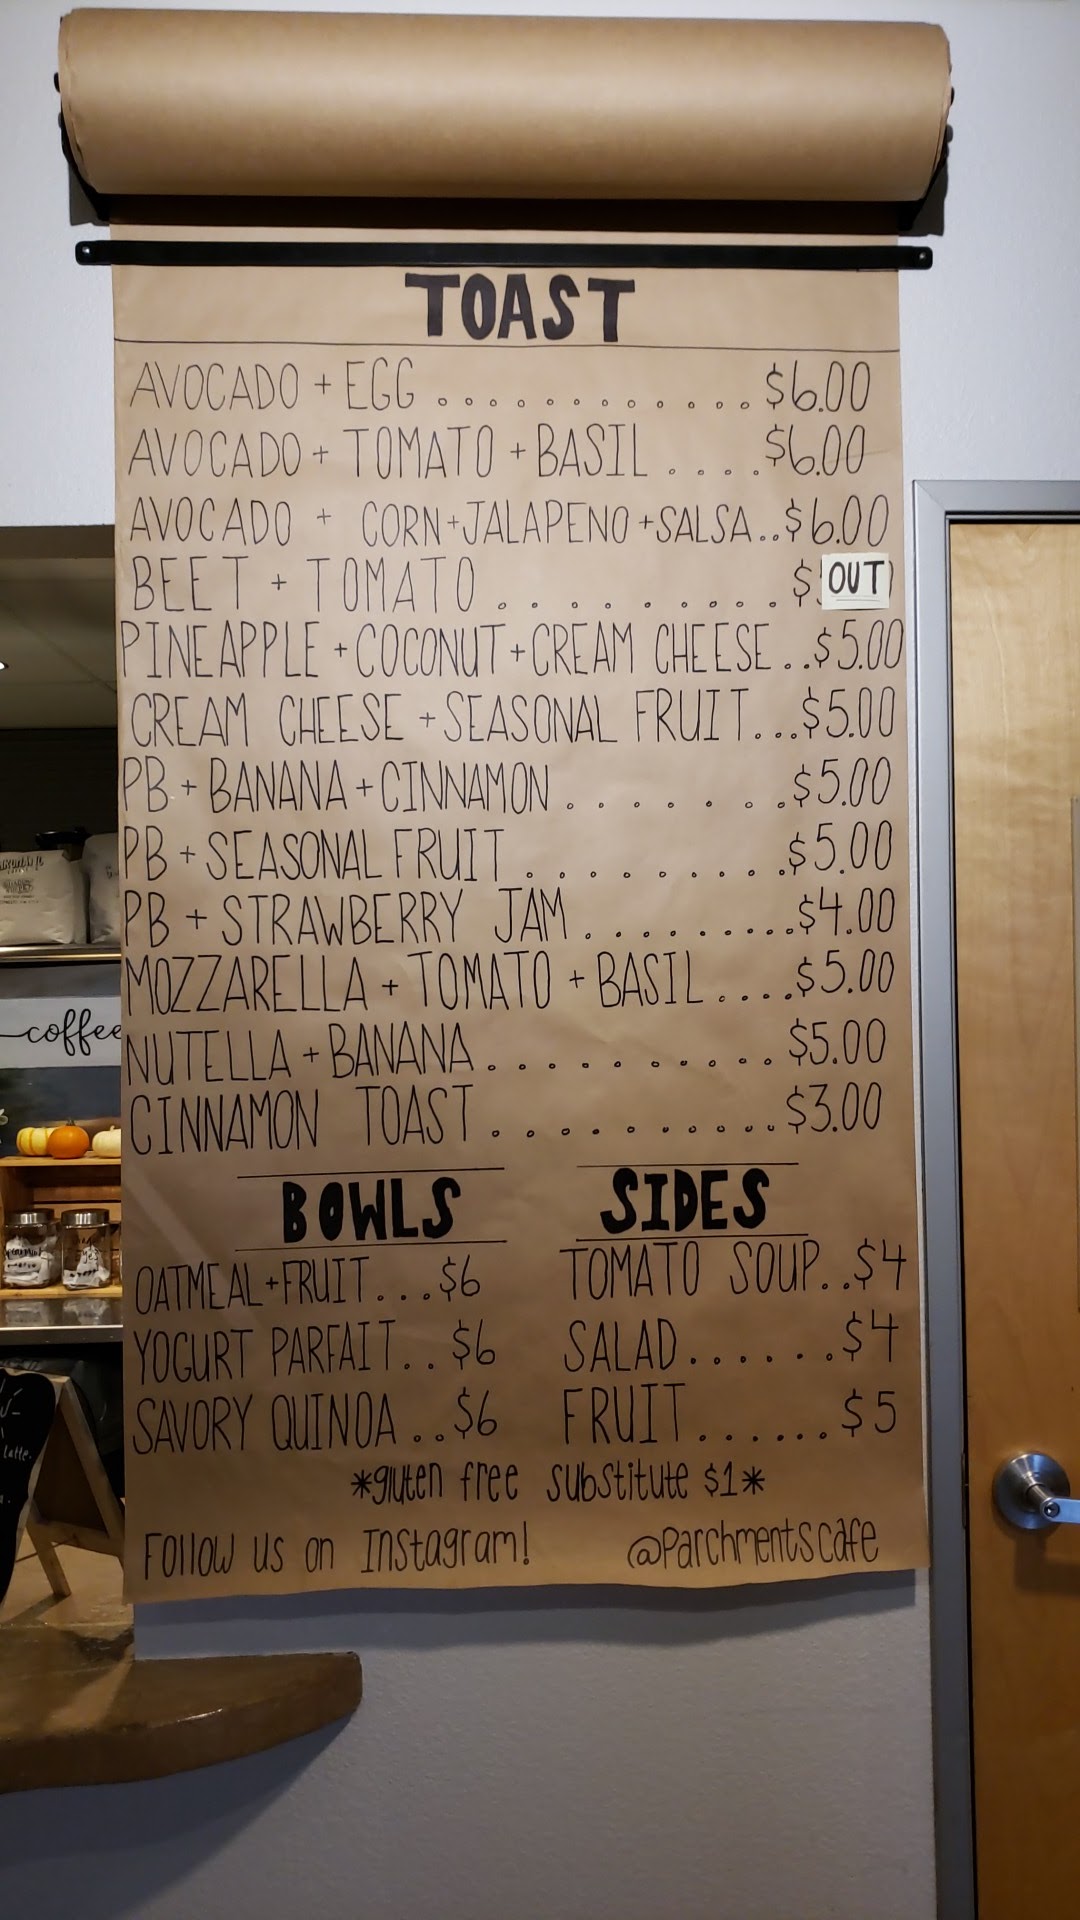 TOAST
AVOCADO + EGG ............. $6.00
AVOCADO + TOMATO + BASIL .... $6.00
AVOCADO + CORN+JALAPENO+SALSA..$6.00
BEET + TOMATO .......... $ OUT
PINEAPPLE + COCONUT + CREAM CHEESE ..$5.00
CREAM CHEESE + SEASONAL FRUIT...$5.00
PB + BANANA + CINNAMON .......$5.00
PB + SEASONAL FRUIT ..........$5.00
PB + STRAWBERRY JAM .........$4.00
MOZZARELLA + TOMATO + BASIL ....$5.00
NUTELLA + BANANA ......... $5.00
CINNAMON TOAST .........$3.00
BOWLS
OATMEAL+FRUIT...$6
YOGURT PARFAIT.. $6
SAVORY QUINOA ..$6
SIDES
TOMATO SOUP..$4
SALAD......$4
FRUIT...... $5
*gluten free substitute $1*
Follow us on Instagram! @Parchmentscafe
coffee
latte.